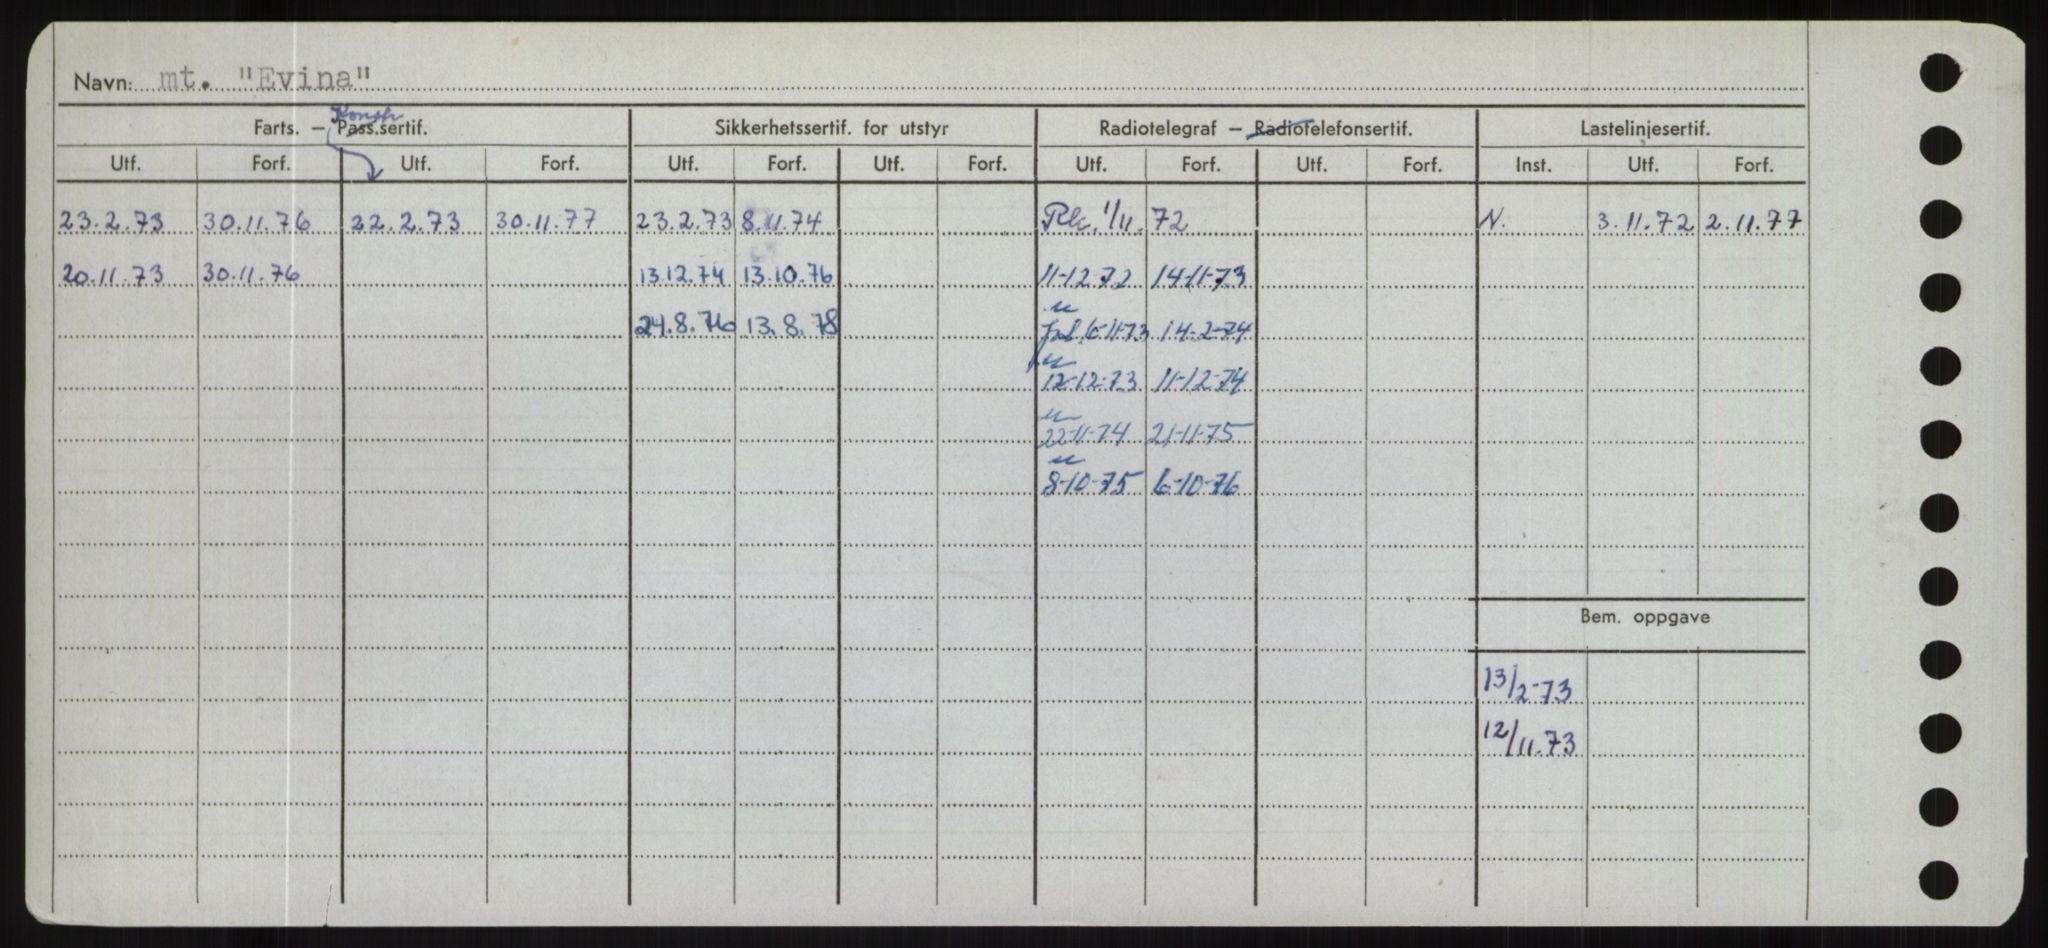 Navn: mt. "Evina"
Konstr.
Farts. – Pass.sertif. Sikkerhetssertif. for utstyr Radiotelegraf – Radiotelefonsertif. Lastelinjesertif.
Utf. Forf. Utf. Forf. Utf. Forf. Utf. Forf. Utf. Forf. Utf. Forf. Inst. Utf. Forf.
23.2.73 30.11.76 22.2.73 30.11.77 23.2.73 8.11.74 1/11.72 N. 3.11.72 2.11.77
20.11.73 30.11.76 13.12.74 13.10.76 11-12-72 14-11-73
24.8.76 13.8.78 6-11-73 14-2-74
12-12-73 11-12-74
22-11-74 21-11-75
8-10-75 6-10-76
Bem. oppgave
13/2-73
12/11.73